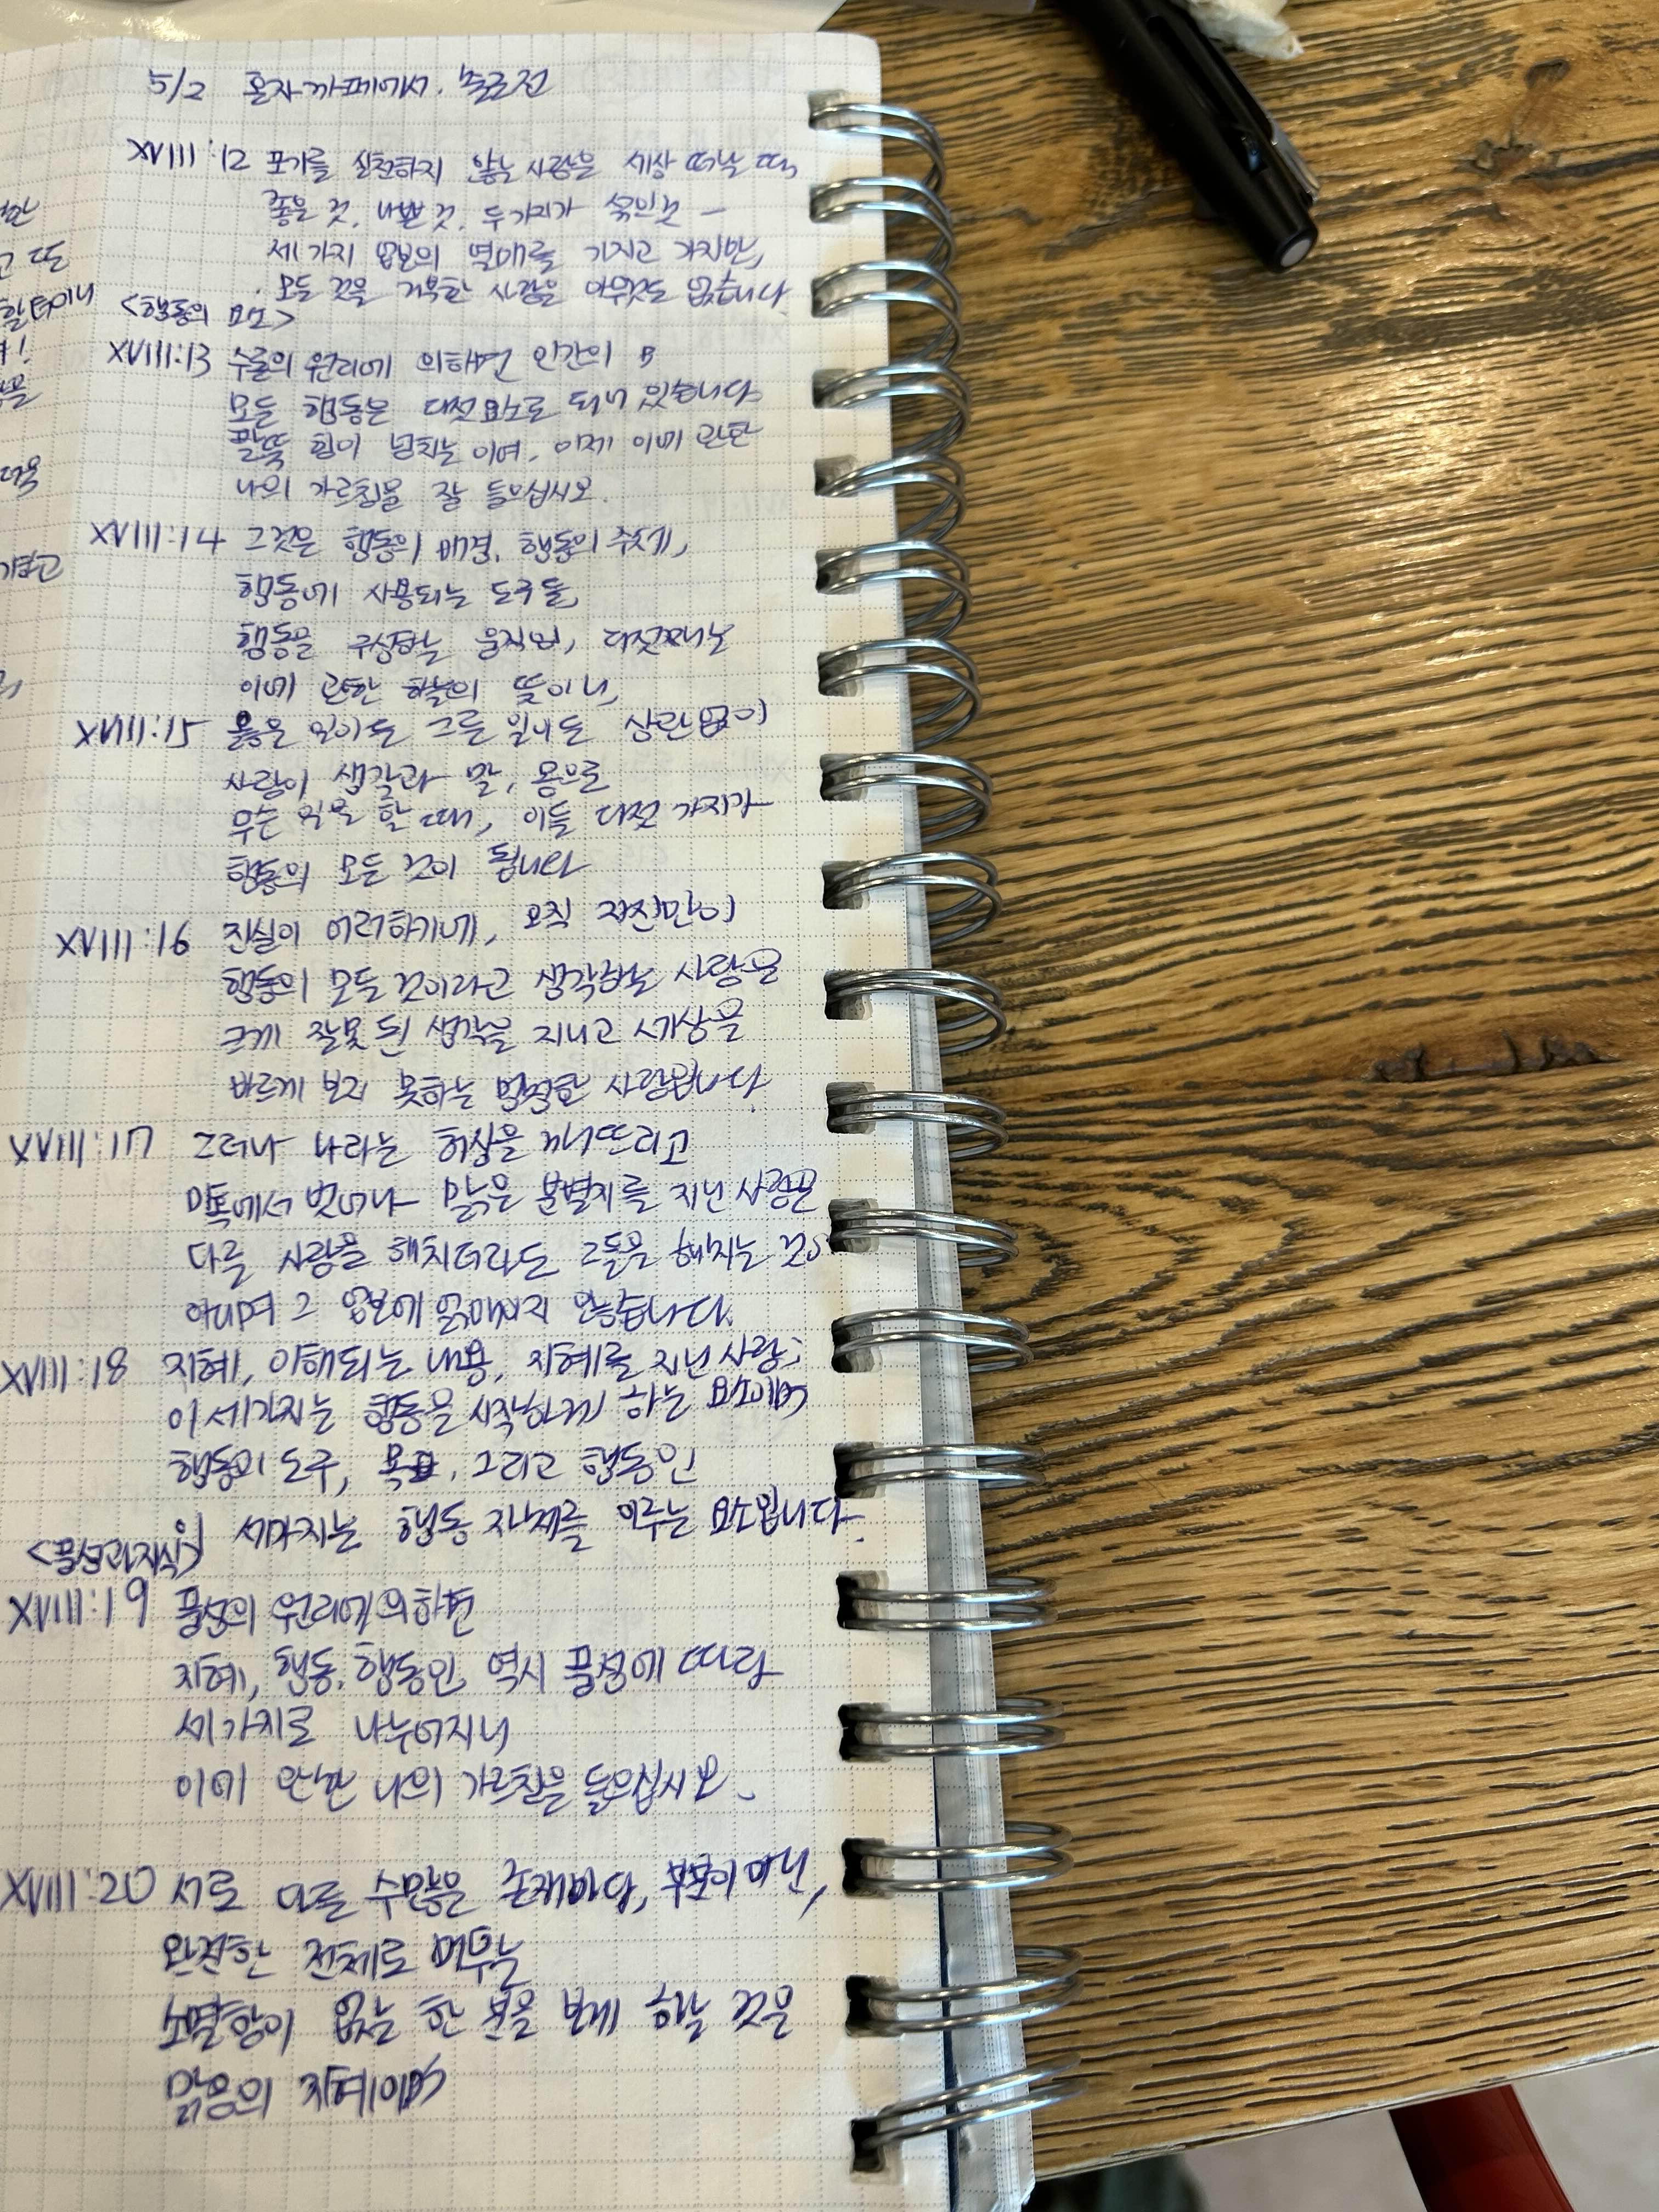 5/2 혼자 까페에서. 출근전
XVIII:12 포기를 실천하지 않는 사람은 세상 떠날 때
좋은 것, 나쁜 것, 두가지가 섞인것 –
세가지 업보의 열매를 가지고 가지만,
모든 것을 거부한 사람은 아무것도 없습니다
<행동의 요소>
XVIII:13 수론의 원리에 의하면 인간의
모든 행동은 다섯요소로 되어 있습니다
팔뚝 힘이 넘치는 이여, 이제 이에 관한
나의 가르침을 잘 들으십시오.
XVIII:14 그것은 행동의 배경, 행동의 주체,
행동에 사용되는 도구들,
행동을 구성하는 움직임, 다섯째는
이에 관한 하늘의 뜻이니,
XVIII:15 옳은 일이든 그른 일이든 상관없이
사람이 생각과 말, 몸으로
무슨 일을 할 때, 이들 다섯 가지가
행동의 모든 것이 됩니다
XVIII:16 진실이 이러하기에, 오직 자신만이
행동의 모든 것이라고 생각하는 사람은
크게 잘못된 생각을 지니고 세상을
바르게 보지 못하는 사람입니다.
XVIII:17 그러나 나라는 허상을 깨뜨리고
미혹에서 벗어나 맑은 분별지를 지닌 사람은
다른 사람을 해치더라도 그들을 해치는 것이
아니며 그 업보에 얽매이지 않습니다.
XVIII:18 지혜, 이해되는 내용, 지혜를 지닌 사람;
이 세가지는 행동을 시작하게 하는 요소이며
행동의 도구, 목표, 그리고 행동인
이 세가지는 행동 자체를 이루는 요소입니다.
<품성과 지식>
XVIII:19 품성의 원리에 의하면
지혜, 행동, 행동인, 역시 품성에 따라
세가지로 나누어지니
이에 관한 나의 가르침을 들으십시오.
XVIII:20 서로 다른 수많은 존재마다, 부분이 아닌,
완전한 전체로 머무는
소멸함이 없는 한 분을 보게 하는 것은
맑음의 지혜이며